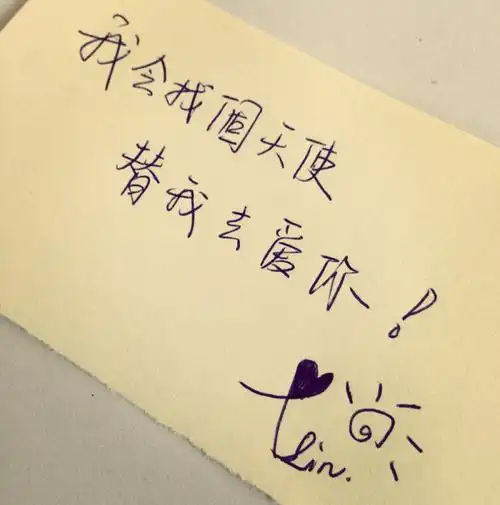 我会找個天使
替我去爱你!
Lin.